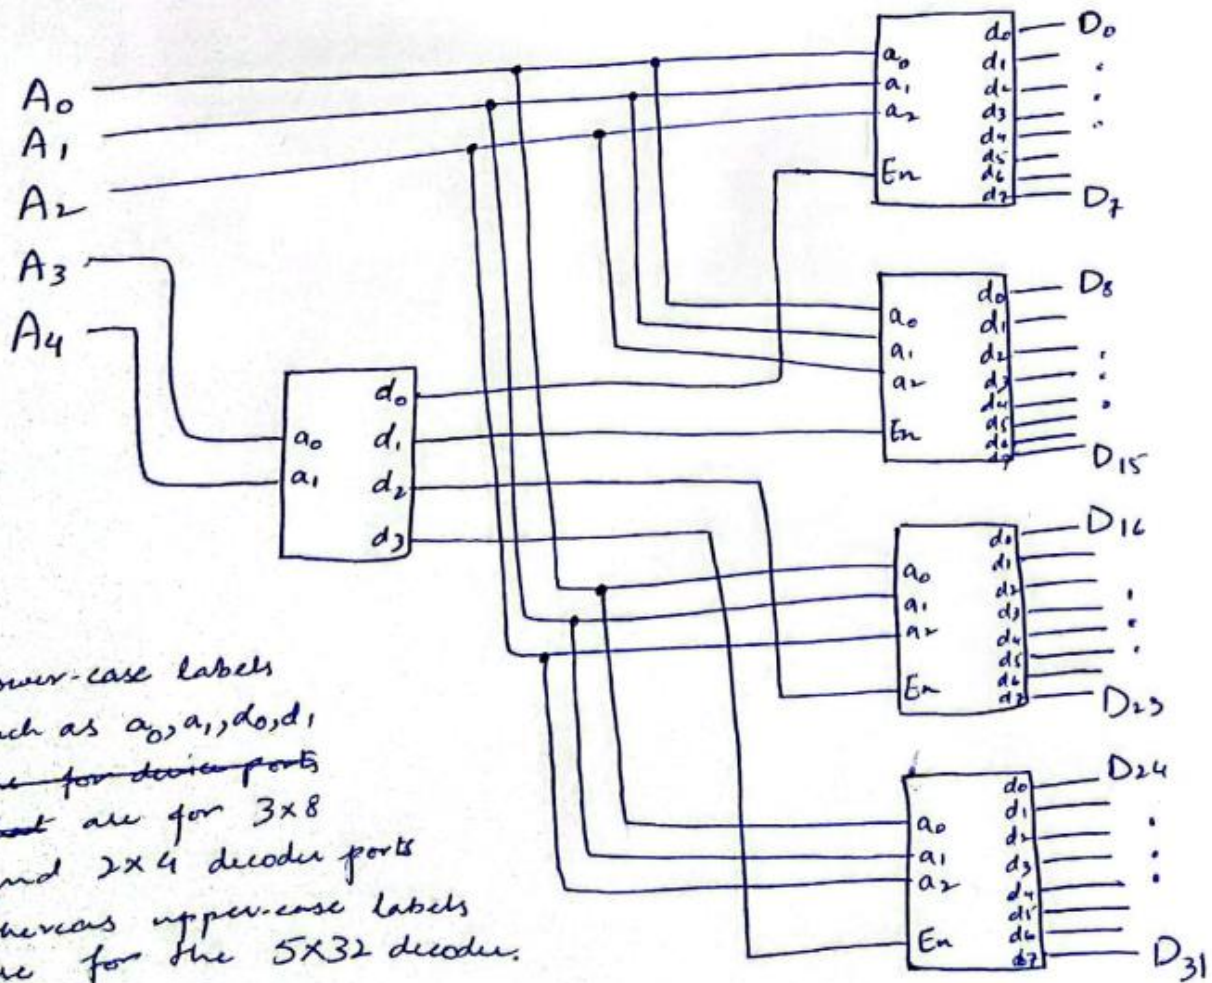 A0
A1
A2
A3
A4
a0
a1
d0
d1
d2
d3
a0
a1
a2
En
d0
d1
d2
d3
d4
d5
d6
d7
D0
D7
a0
a1
a2
En
d0
d1
d2
d3
d4
d5
d6
d7
D8
D15
a0
a1
a2
En
d0
d1
d2
d3
d4
d5
d6
d7
D16
D23
a0
a1
a2
En
d0
d1
d2
d3
d4
d5
d6
d7
D24
D31
ower-case labels
uch as a0, a1, d0, d1
for device ports
are for 3x8
nd 2x4 decoder ports
hereas upper-case labels
for the 5X32 decoder.